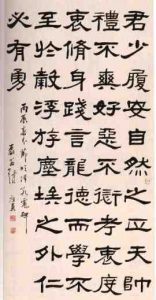 君少履安自然之正天帥
禮不爽好惡不愆考衷度
衷脩身踐言龍德而學不
至於穀浮游塵埃之外仁
必有勇
丙辰